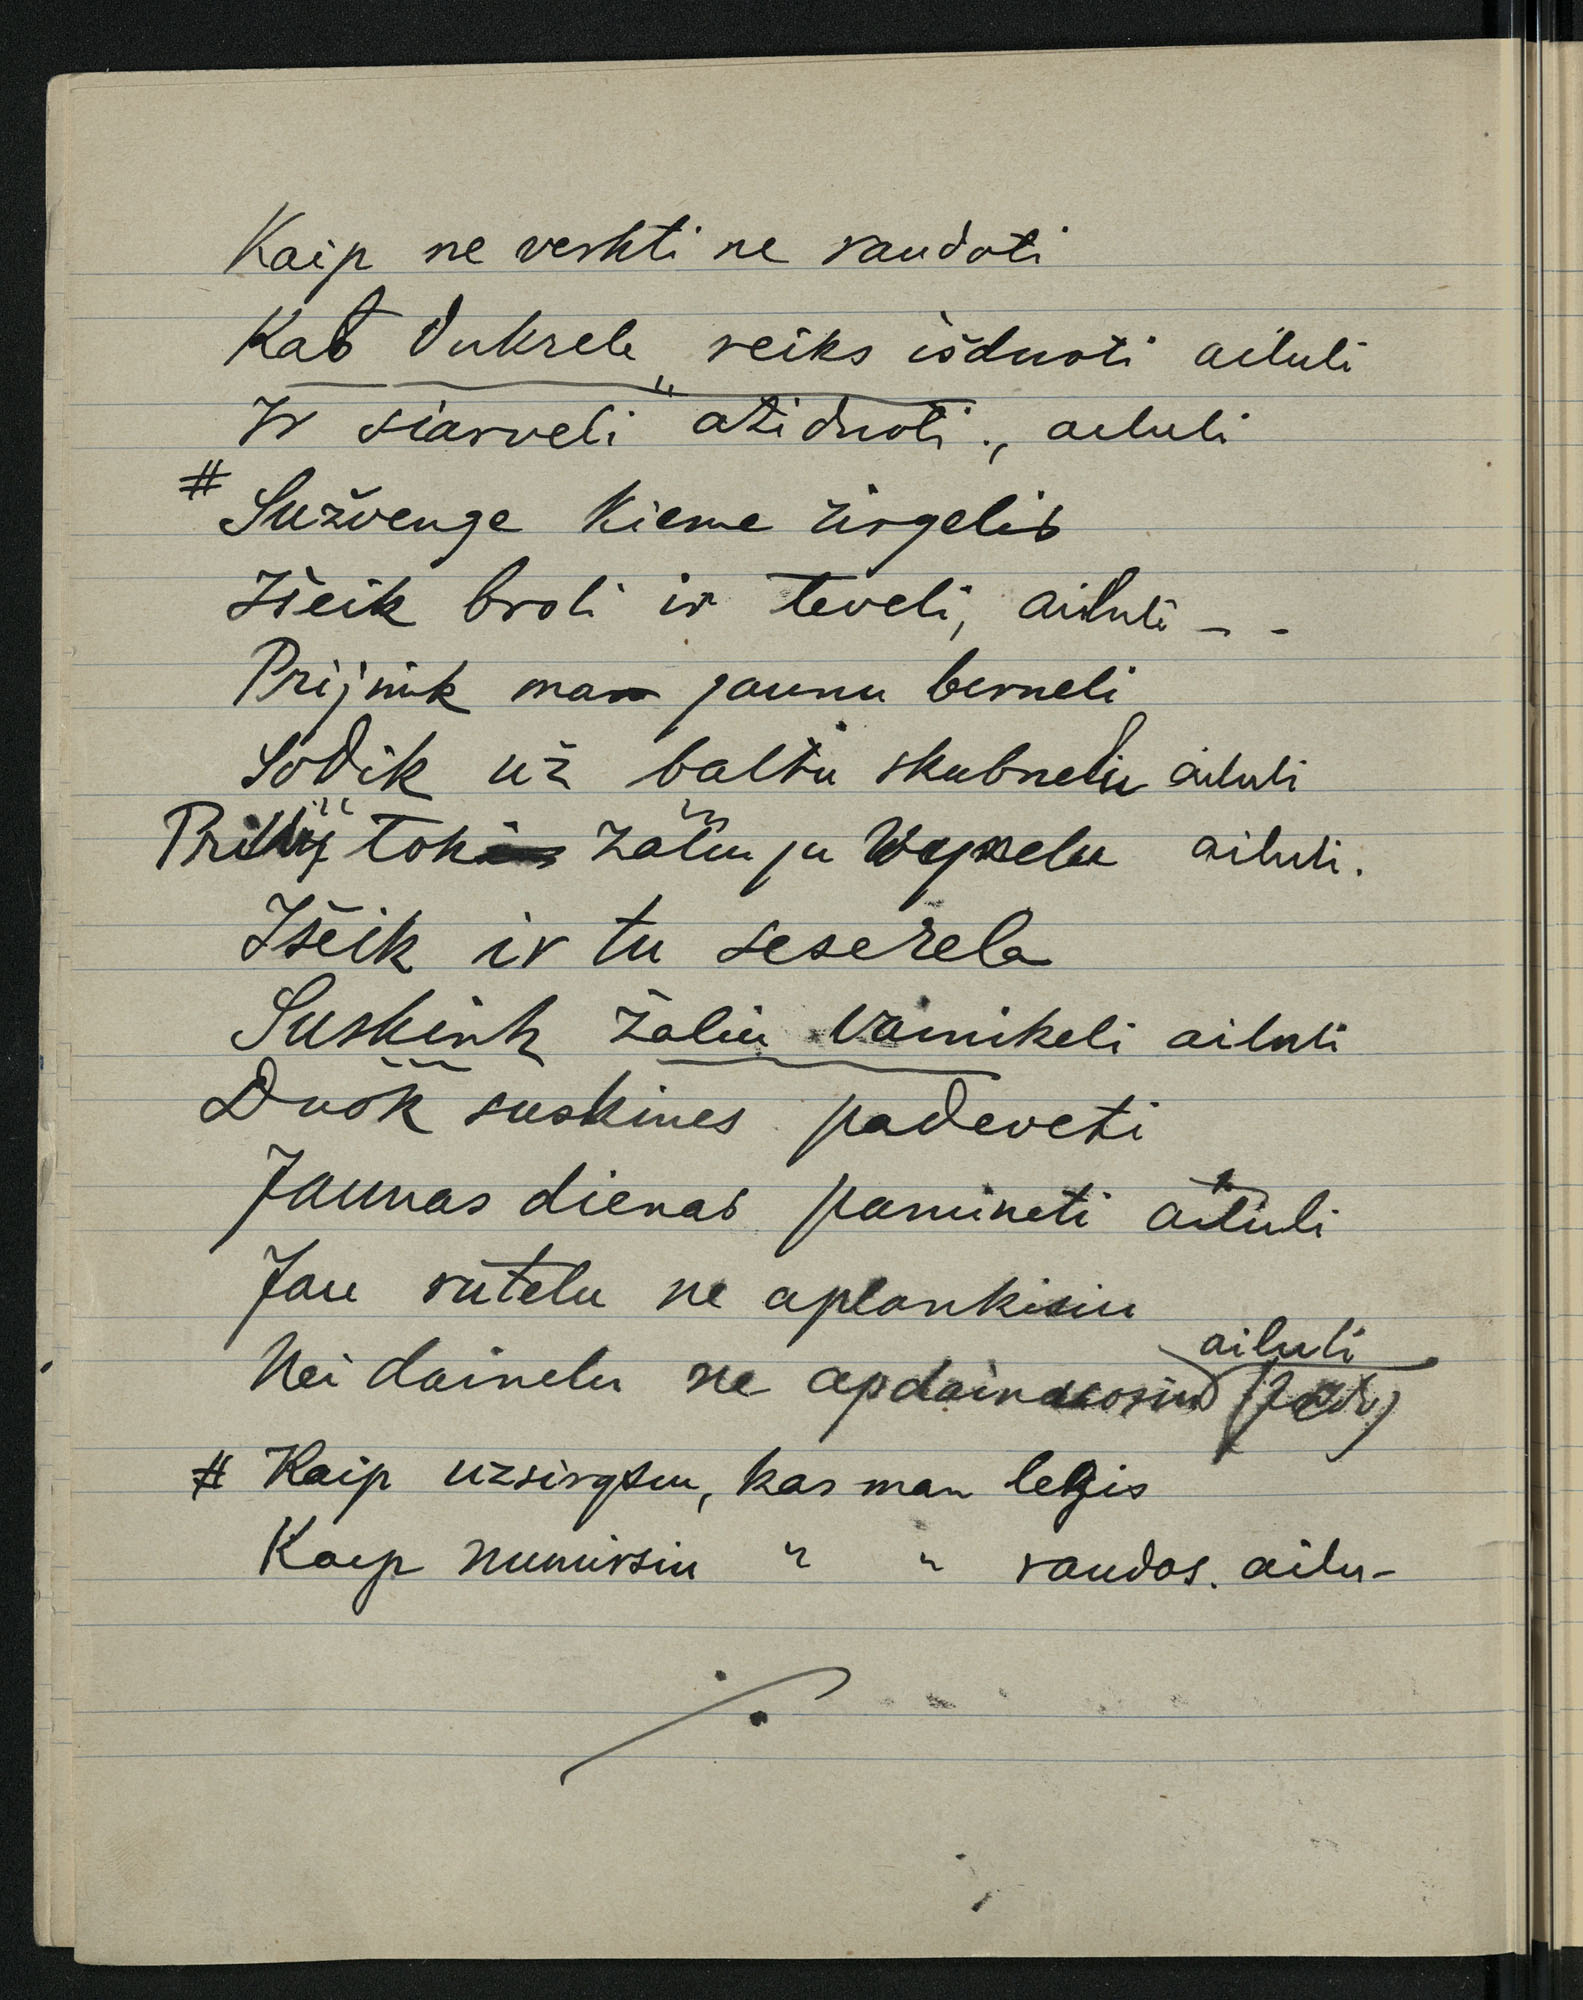 Kaip ne verkti ne raudoti
Kad dukrele reiks išduoti ailuli
Ir siarveli atiduoti., ailuli
# Sužvenge kieme žirgelis
Išeik broli ir teveli, ailuli - -
Prijmk man jaunu berneli
Sodik už baltu skabneliu ailuli
žaliu ju wynelu ailuli.
Išeik ir tu seserela
Suskink žaliu vainikeli ailuli
Duok suskines padeveti
Jaunas dienas pamineti ailuli
Jau rutelu ne aplankisiu
ailuli
Nei dainelu ne apdainuosiu
# Kaip uzsirgsiu, kas man lekis
Kaip numirsiu " " raudos. ailu-